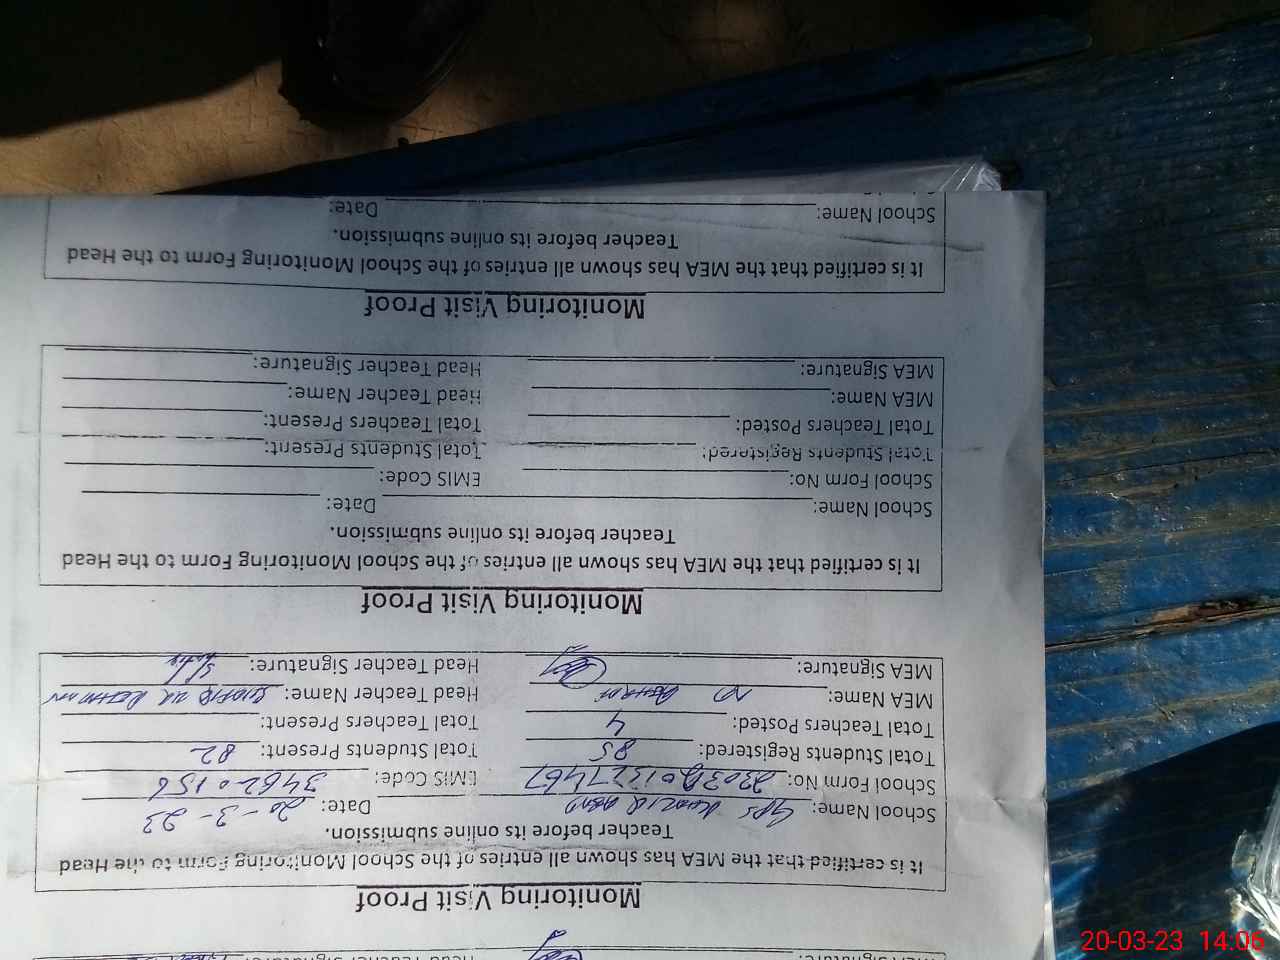 Head Teacher Signature:
Monitoring Visit Proof
It is certified that the MEA has shown all entries of the School Monitoring Form to the Head
Teacher before its online submission.
School Name: GPS Date: 20-3-23
School Form No: EMIS Code: 34620156
Total Students Registered: 85 Total Students Present: 82
Total Teachers Posted: 4 Total Teachers Present:
MEA Name: Head Teacher Name: ur Rehman
MEA Signature: Head Teacher Signature:
Monitoring Visit Proof
It is certified that the MEA has shown all entries of the School Monitoring Form to the Head
Teacher before its online submission.
School Name: Date:
School Form No: EMIS Code:
Total Students Registered: Total Students Present:
Total Teachers Posted: Total Teachers Present:
MEA Name: Head Teacher Name:
MEA Signature: Head Teacher Signature:
Monitoring Visit Proof
It is certified that the MEA has shown all entries of the School Monitoring Form to the Head
Teacher before its online submission.
School Name: Date:
20-03-23 14:06